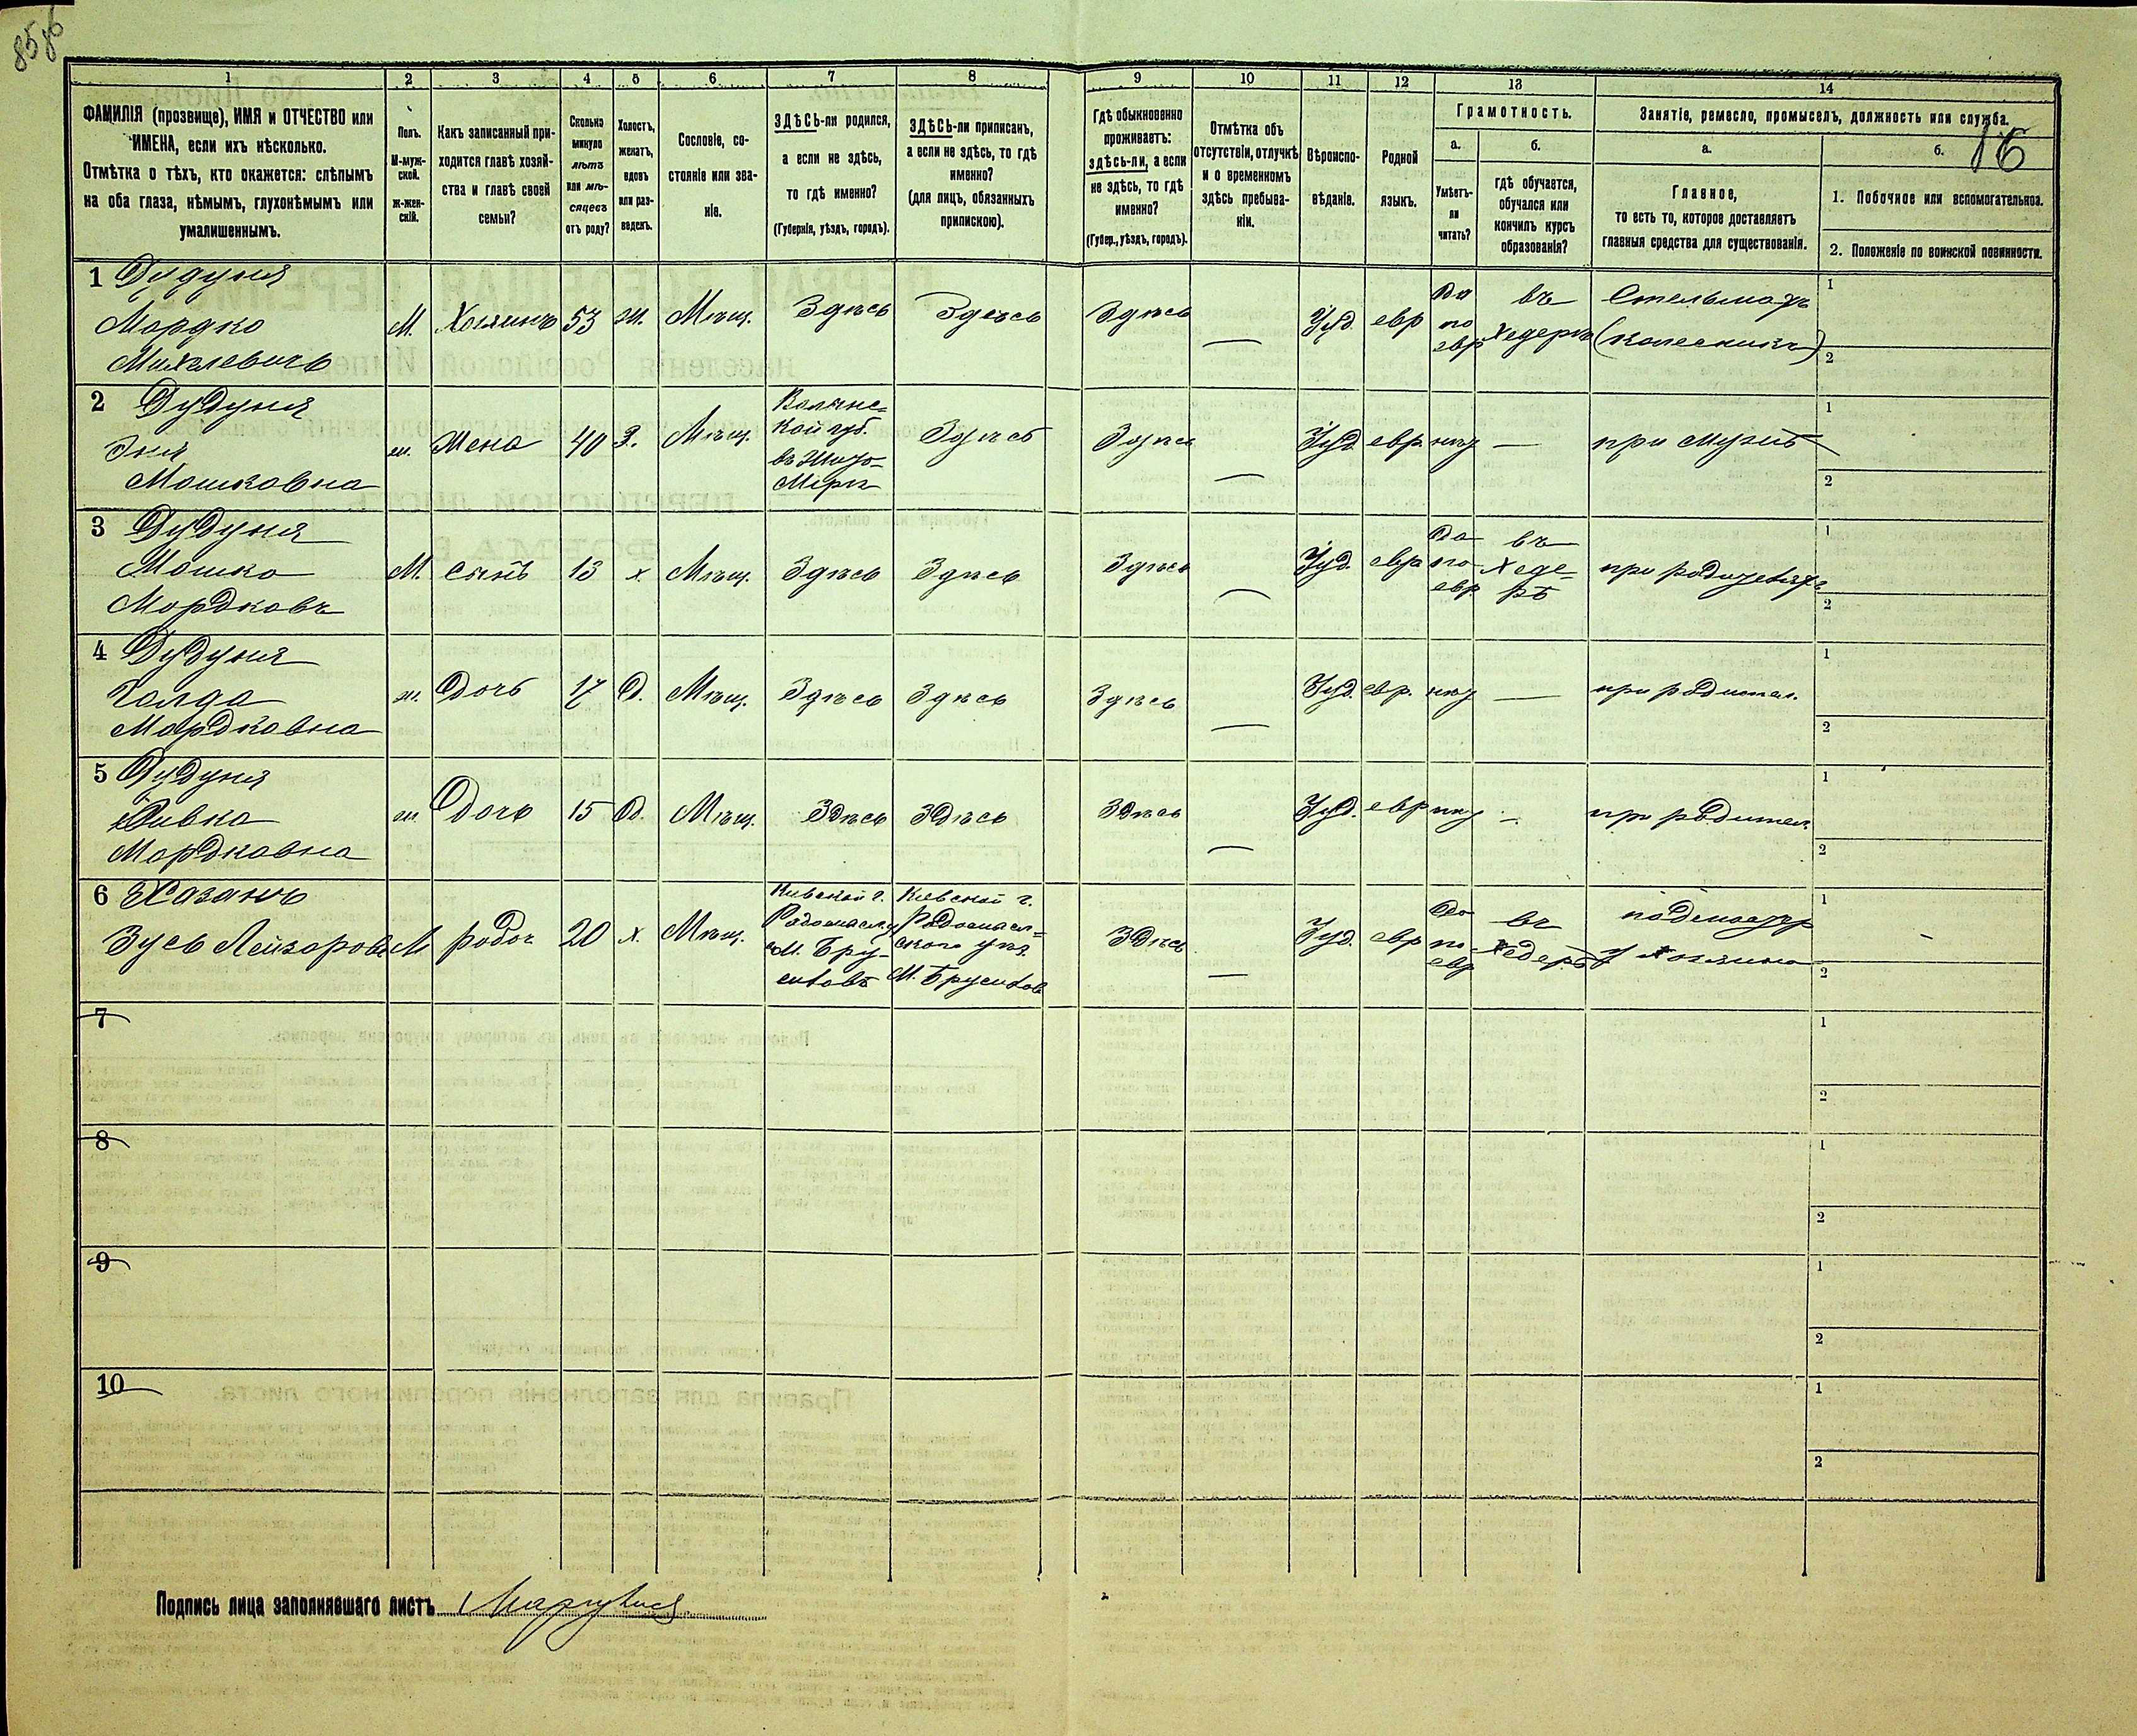 85 86
1 2 3 4 5 6 7 8 9 10 11 12 13 14
ФАМИЛІЯ (прозвище), ИМЯ и ОТЧЕСТВО или
ИМЕНА, если ихъ нѣсколько.
Отмѣтка о тѣхъ, кто окажется: слѣпымъ
на оба глаза, нѣмымъ, глухонѣмымъ или
умалишеннымъ.
Полъ.
М-муж-
ской.
ж-жен-
скій.
Какъ записанный при-
ходится главѣ хозяй-
ства и главѣ своей
семьи?
Сколько
минуло
лѣтъ
или мѣ-
сяцевъ
отъ роду?
Холостъ,
женатъ,
вдовъ
или раз-
веденъ.
Сословіе, со-
стояніе или зва-
ніе.
ЗДѢСЬ-ли родился,
а если не здѣсь,
то гдѣ именно?
(Губернія, уѣздъ, городъ).
ЗДѢСЬ-ли приписанъ,
а если не здѣсь, то гдѣ
именно?
(для лицъ, обязанныхъ
припискою).
Гдѣ обыкновенно
проживаетъ:
здѣсь-ли, а если
не здѣсь, то гдѣ
именно?
(Губер., уѣздъ, городъ).
Отмѣтка объ
отсутствіи, отлучкѣ
и о временномъ
здѣсь пребыва-
ніи.
Вѣроиспо-
вѣданіе.
Родной
языкъ.
Грамотность.
а.
Умѣетъ-
ли
читать?
б.
гдѣ обучается,
обучался или
кончилъ курсъ
образованія?
Занятіе, ремесло, промыселъ, должность или служба.
16
а.
Главное,
то есть то, которое доставляетъ
главныя средства для существованія.
б.
1. Побочное или вспомогательное.
2. Положеніе по воинской повинности.
1 Дудуня
Мордко
Михелевичъ
М. Хозяинъ 53 ж. Мѣщ. Здѣсь Здѣсь Здѣсь — Іуд. евр
Да
по
евр
въ
Хедерѣ
Стельмахъ
(колесникъ)
1
2
2 Дудуня
Эня
Мошковна
ж. Жена 40 З. Мѣщ.
Волынс=
кой губ.
въ Жито-
мірѣ
Здѣсь Здѣсь — Іуд. евр. нѣт — при мужѣ
1
2
3 Дудуня
Мошко
Мордковъ
М. сынъ 13 х. Мѣщ. Здѣсь Здѣсь Здѣсь — Іуд. евр
Да
по
евр.
въ
Хеде-
рѣ
при родителяхъ
1
2
4 Дудуня
Голда
Мордковна
ж. Дочь 17 Д. Мѣщ. Здѣсь Здѣсь Здѣсь — Іуд. евр. нѣт — при родител.
1
2
5 Дудуня
Ривка
Мордковна
ж Дочь 15 Д. Мѣщ. Здѣсь Здѣсь Здѣсь — Іуд. евр нѣт — при родител.
1
2
6 Хазанъ
Зусь Лейзоровъ
М рабоч 20 х. Мѣщ.
Кіевской г.
Радомысл у
М. Бру-
силовъ
Кіевской г.
Радомысл=
скаго уѣз.
М. Брусиловъ
Здѣсь — Іуд. евр
Да
по
евр
въ
Хедерѣ
подмастер
у хозяина
1
2
7
1
2
8
1
2
9
1
2
10
1
2
Подпись лица заполнявшаго листъ